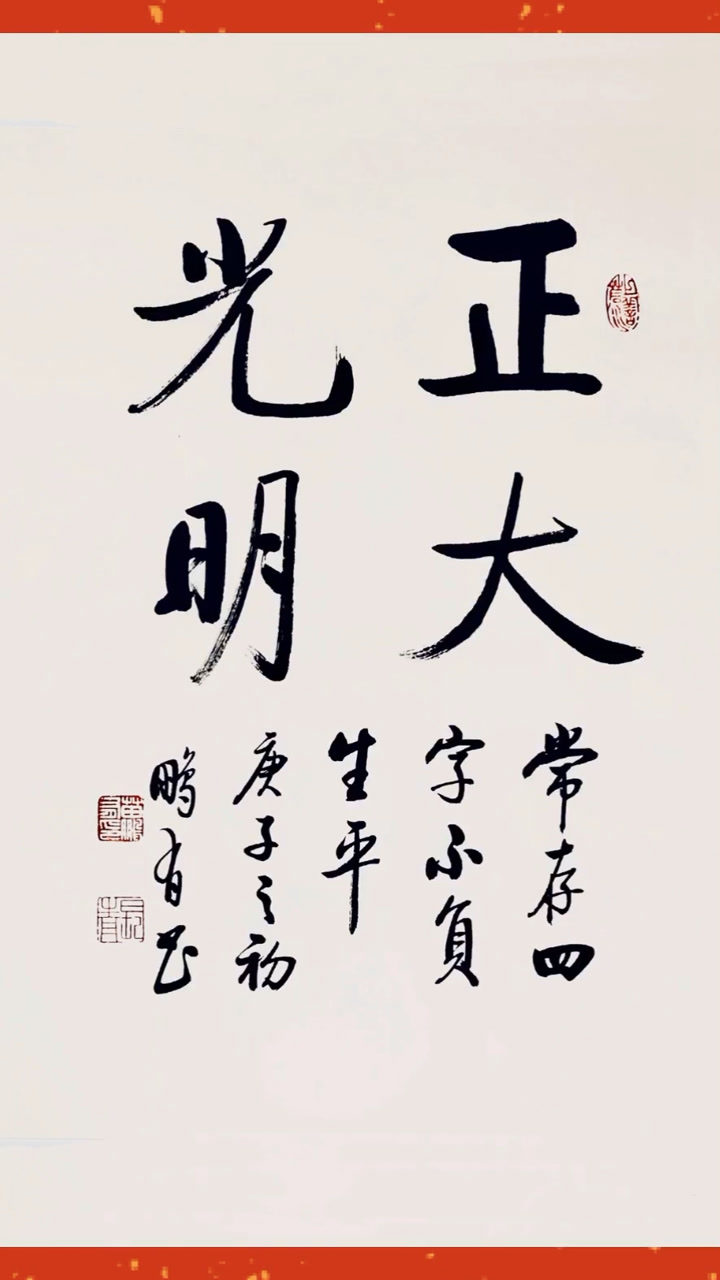 正大
光明
常存四
字不负
生平
庚子之初
鹏有